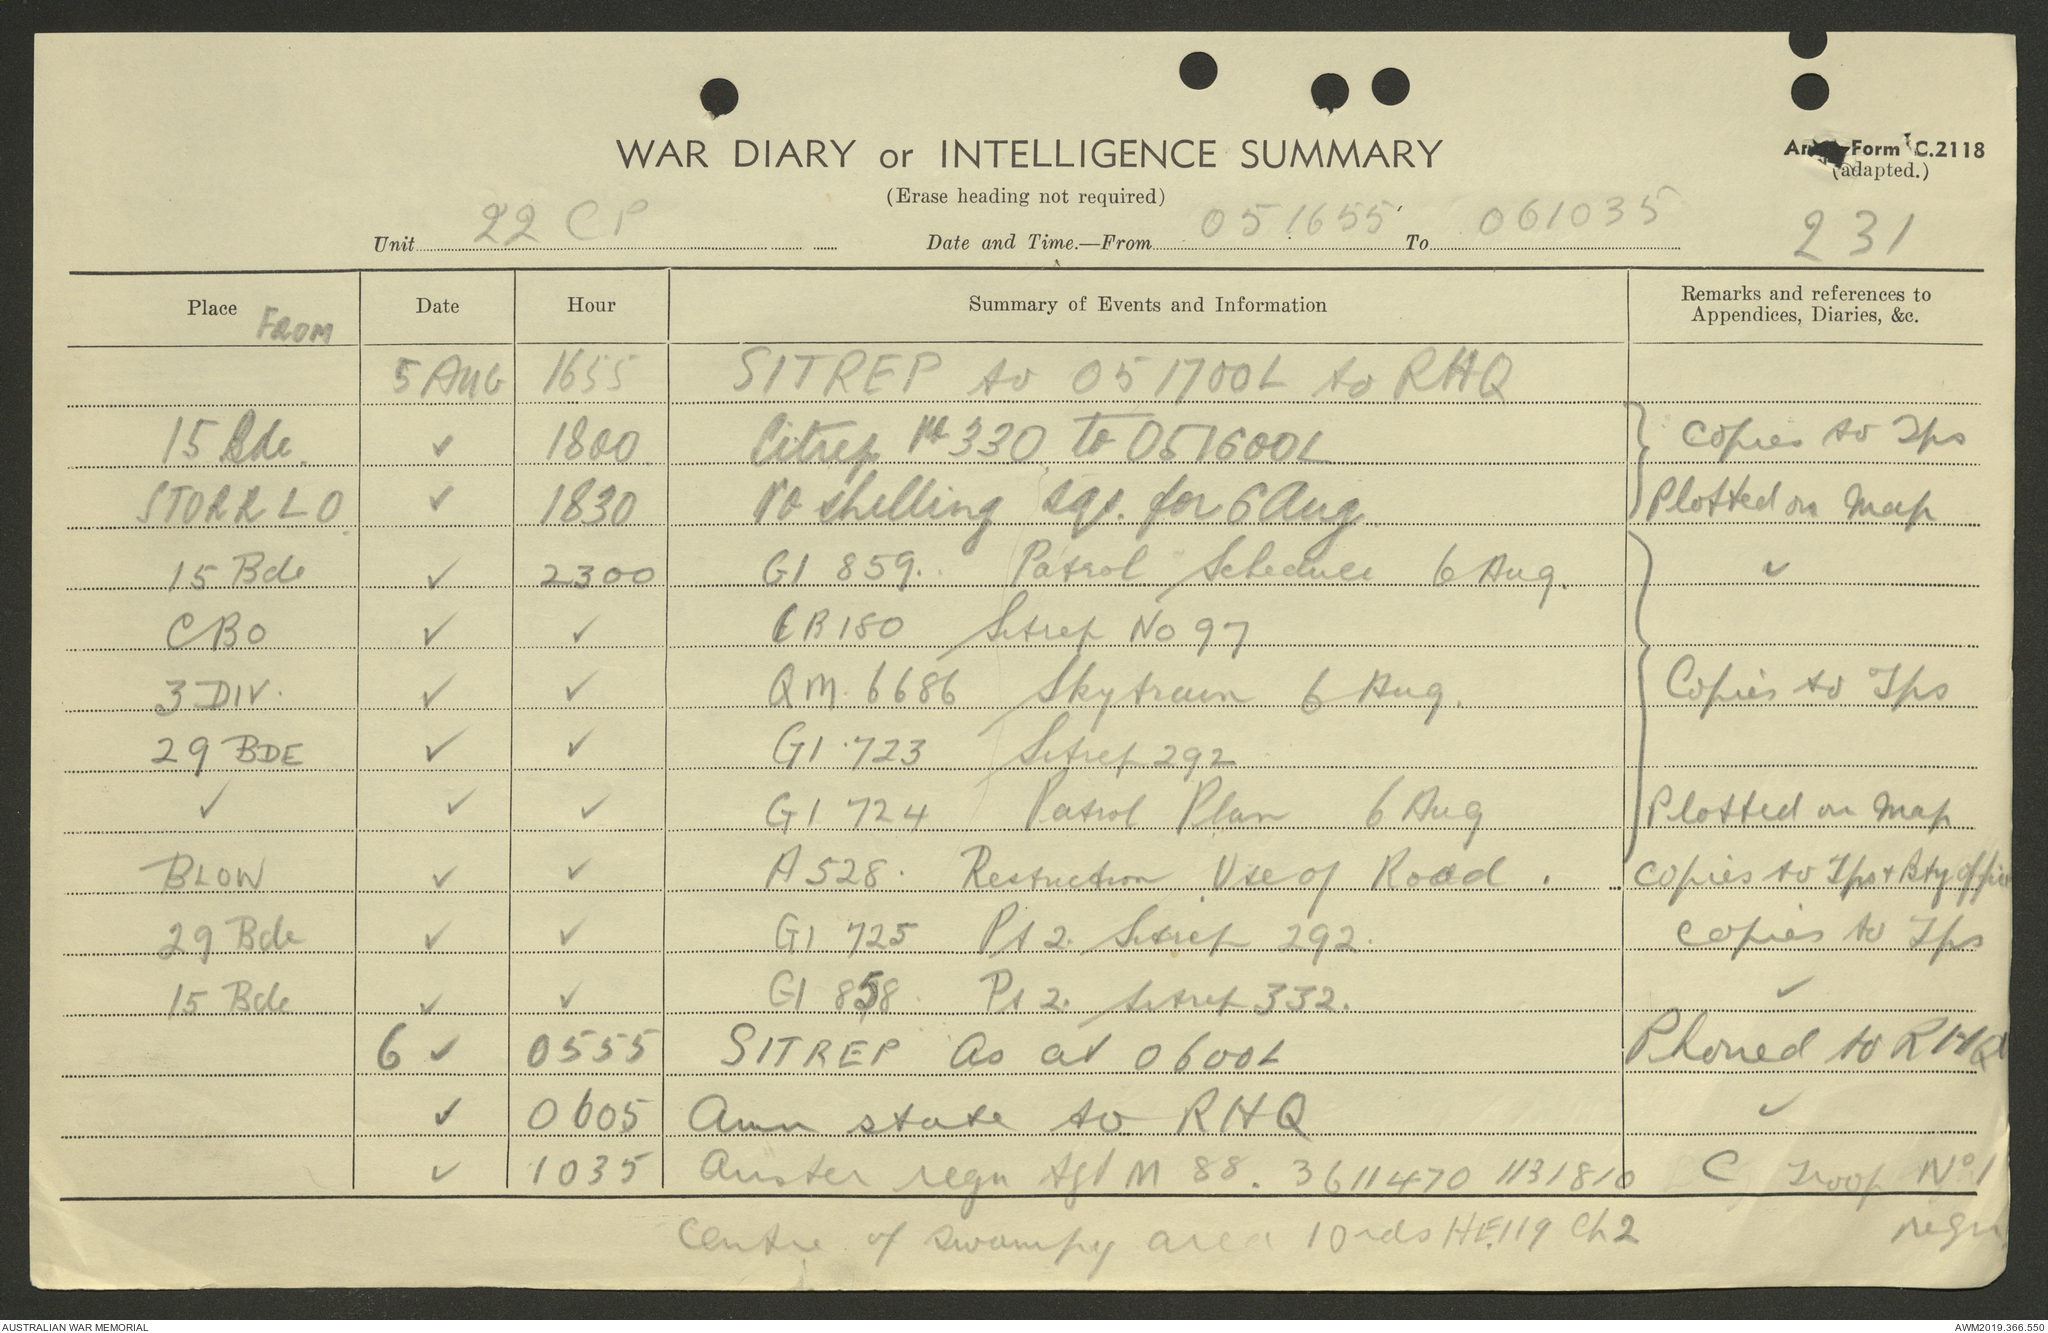 WAR DIARY or INTELLIGENCE SUMMARY
Form C.2118
(adapted.)
(Erase heading not required)
Unit 22 CP Date and Time.—From 051655 To 061035 231
Place FROM Date Hour Summary of Events and Information Remarks and references to Appendices, Diaries, &c.
5 AUG 1655 SITREP to 051700L to RHQ
15 Bde. ✓ 1800 Sitrep No 330 to 051600L Copies to Tps
STORR LO. ✓ 1830 No shelling sqs. for 6 Aug. Plotted on Map
15 Bde ✓ 2300 G1 859. Patrol Schedule 6 Aug. ✓
CBO ✓ ✓ CB180 Sitrep No 97
3 DIV. ✓ ✓ QM. 6686 Skytrain 6 Aug. Copies to Tps
29 BDE ✓ ✓ G1 723 Sitrep 292
✓ ✓ ✓ G1 724 Patrol Plan 6 Aug Plotted on Map
BLOW ✓ ✓ A528. Restriction Use of Road. Copies to Tps + Bty Office
29 Bde ✓ ✓ G1 725 Pt 2. Sitrep 292. Copies to Tps
15 Bde ✓ ✓ G1 858. Pt 2. Sitrep 332. ✓
6 ✓ 0555 SITREP As at 0600L Phoned to RHQ
✓ 0605 Amn state to RHQ ✓
✓ 1035 Auster regn tgt M 88. 3611470 1131810 C Troop No 1
Centre of swampy area 10 rds HE119 Ch2 regn
AUSTRALIAN WAR MEMORIAL
AWM2019.366.550